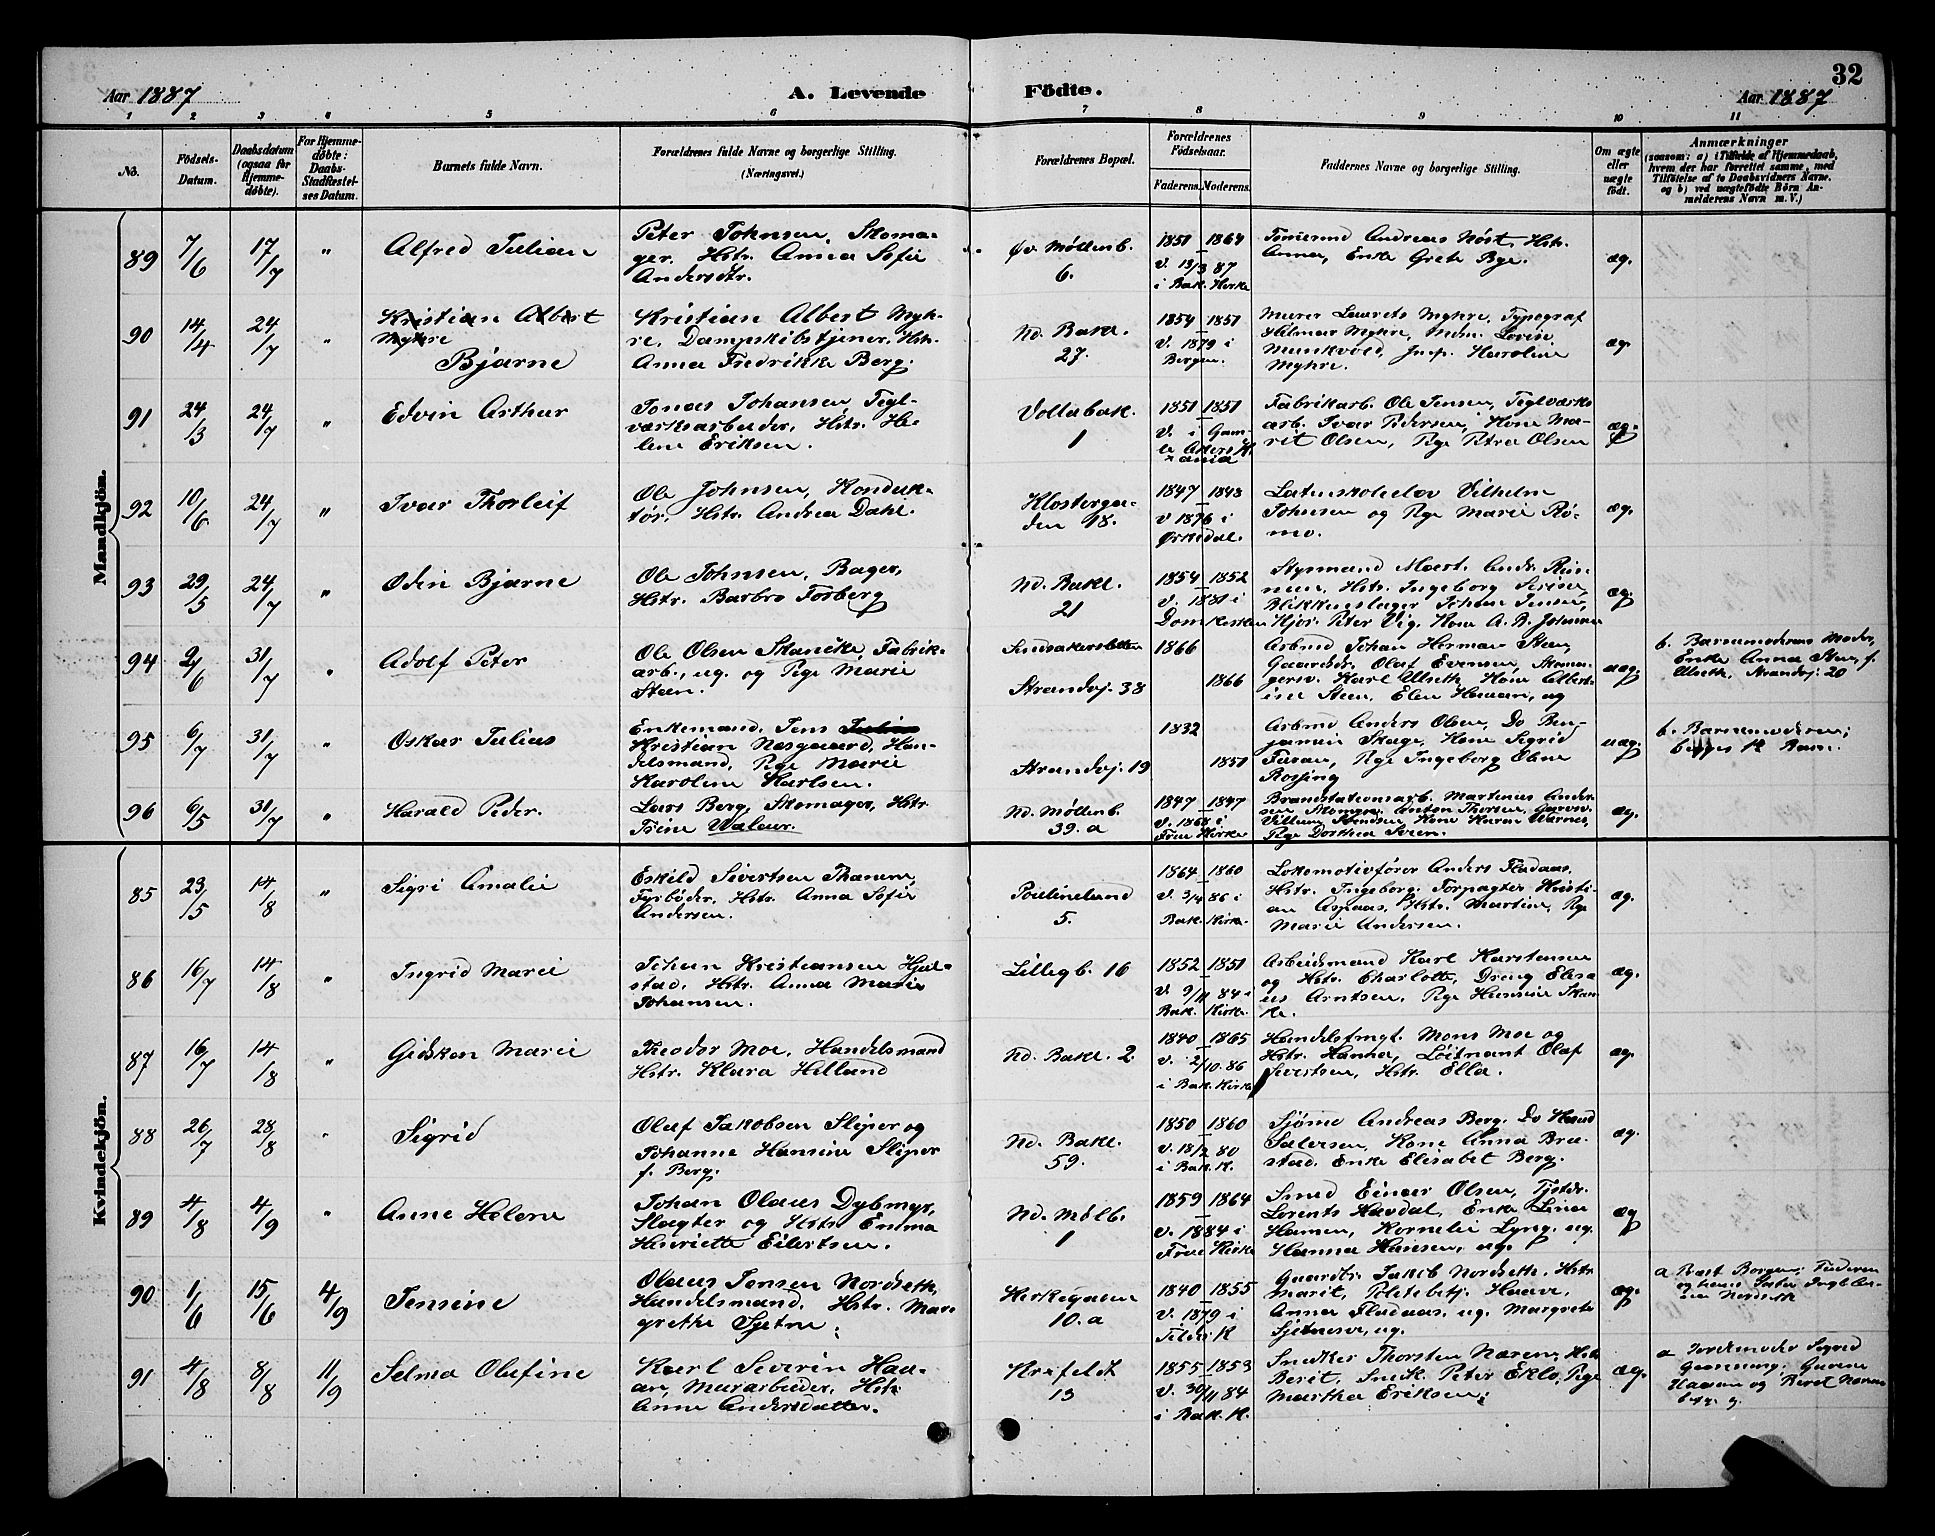 32
Aar 1887
A. Levende Födte.
Aar 1887
1 2 3 4 5 6 7 8 9 10 11
No.
Födsels-
Datum.
Daabsdatum
(ogsaa for
Hjemme-
døbte).
For Hjemme-
døbte:
Daabs-
Stadfæstel-
ses Datum.
Barnets fulde Navn.
Forældrenes fulde Navne og borgerlige Stilling.
(Næringsvei.)
Forældrenes Bopæl.
Forældrenes
Födselsaar.
Faderens. Moderens.
Faddernes Navne og borgerlige Stilling.
Om ægte
eller
uægte
født.
Anmærkninger
(saasom: a) i Tilfælde af Hjemmedaab,
hvem der har forrettet samme, med
Tilföielse af to Daabsvidners Navne,
og b) ved uægtefödte Börn An-
melderens Navn m. V.)
Mandkjön.
89 7/6 17/7 " Alfred Julian
Peter Johnsen, Skoma-
ger. Hstr. Anna Sofie
Andersdtr.
Øv. Møllenb.
6.
1851 1864
V. 13/3 87
i Bak. Kirke
Tømmermd Andreas Nøst, Hstr.
Anna, Enke Grete Rye.
æg.
90 14/4 24/7 " Kristian Albert
Myhre
Bjarne
Kristian Albert Myh-
re, Dampskibstjener, Hstr.
Anna Fredrikke Berg.
Nd. Bakl.
27.
1854 1851
V. 1879 i
Bergen.
Murer Laurets Myhre, Typograf
Hilmar Myhre, Mdm. Lovise
Munkvold, Jnfr. Karoline
Myhre.
æg.
91 24/3 24/7 " Edvin Arthur
Jonas Johansen, Tegl-
værksarbeider, Hstr. He-
lene Eriksen.
Vollabak.
1
1851 1851
V. i Gam-
le Akers K.
Fabrikarb. Ole Jensen, Teglværks
arb. Ivar Pedersen, Kone Ma-
rit Olsen, Pige Petra Olsen
æg.
92 10/6 24/7 " Ivar Thorleif
Ole Johnsen, Konduk-
tør, Hstr. Andrea Dahl.
Klosterga-
den 98.
1847 1843
V 1876 i
Ørkedal.
Latinskoleelev Vilhelm
Johnsen og Pige Marie Rø-
mo.
æg.
93 29/5 24/7 " Odin Bjarne
Ole Johnsen, Bager,
Hstr. Barbro Forberg
Nd. Bakl.
21
1854 1852
V. 1881 i
Domkirken
Styrmand Mart. Andr.
Hstr. Ingeborg
Blikkenslager Johan Jensen,
Peter Vig, Kone A. B. Johnsen
æg.
94 2/6 31/7 " Adolf Peter
Ole Olsen Skancke, Fabrik-
arb., ug. og Pige Marie
Steen.
Strandvj. 38
1866
1866
Arbmd Johan Herman Steen,
Gaardbr. Olaf Evensen, Skoma-
gersv. Karl Alseth, Kone Albert-
ine Steen, Elen Hauan, ug
uæg
b. Barnemoderens Moder,
Enke Anna Steen, f.
Alseth, Strandvj. 20
95 6/7 31/7 " Oskar Julius
Enkemand, Jens Julius
Kristian Næsgaard, Han-
delsmand, Pige Marie
Karoline Karlsen.
Strandvj. 19
1832
1851
Arbmd Anders Olsen, Do Ben-
jamin Skage, Kone Sigrid
Fusan, Pige Ingeborg Eline
Rossing
uæg.
b. Barnemoderen;
begges 1te Barn.
96 6/5 31/7 " Harald Peder.
Lars Berg, Skomager, Hstr
Trine Waleur.
Nd. Møllenb.
39. a
1847 1847
V. 1868 i
Frue Kirke
Brandstationsarb. Martinius Ander-
sen, Skomager Anton Thorsen, Garversv.
Villum Svendsen, Kone Karen Warnes,
Pige Dorthea Svien.
æg.
Kvindekjön.
85 23/5 14/8 " Sigri Amalie
Eskild Sivertsen Thamm,
Fyrbøder, Hstr. Anna Sofie
Andersen.
Poulinelund
5.
1864 1860
V. 3/4 86 i
Bak. Kirke
Lokomotivfører Anders Fladaas,
Hstr. Ingeborg. Forpagter Kristi-
an Aspaas, Hstr. Martine, Pige
Marie Andersen.
æg.
86 16/7 14/8 " Ingrid Marie
Johan Kristiansen Hjul-
stad, Hstr. Anna Marie
Johansen.
Lillegb. 16
1852 1851
V. 9/11 84 i
Bak. Kirke.
Arbeidsmand Karl Karstensen
og Hstr. Charlotte, Dreng Elise-
us Arntsen, Pige Hansine Skan
ke.
æg.
87 16/7 14/8 " Gidsken Marie
Theodor Moe, Handelsmand
Hstr. Klara Helland
Nd. Bakl. 2
1840 1865
V. 2/10 86
i Bak. Kirke
Handelsfmgt. Mons Moe og
Hstr. Hanna, Løitnant Olaf
Sivertsen, Hstr. Ella.
æg.
88 26/7 28/8 " Sigrid
Oluf Jakobsen Sliper og
Johanne Hansine Sliper
f. Berg.
Nd. Bakl.
59.
1850 1860
V. 18/2 80
i Bak. K.
Sjømd Andreas Berg, Do Hans
Salersen, Kone Anna Bra-
stad. Enke Elisabet Berg.
æg.
89 4/8 4/9 " Anne Helene
Johan Olaus Dybmyr,
Slagter og Hstr. Emma
Henriette Eilertsen.
Nd. Mølb.
1
1859 1864
V. 1884 i
Frue Kirke
Smed Einar Olsen, Tjstdr.
Lorents Havdal, Enke Lina
Hansen, Kornelie Lyng, ug.
Hanna Hansen, ug.
æg
90 1/6 15/6 4/9 Jensine
Olaus Jensen Nordseth,
Handelsmand. Hstr. Mar-
grethe Sjetne.
Kirkegaden
10. a
1840 1855
V. 1879 i
Tiller K
Gaardbr. Jakob Nordseth, Hstr
Marit, Politibetj. Haave,
Anna Fladaas, ug. Margrete
Sjetnesen, ug.
æg.
a Best. Borgen; Faderen
og hans Søster Ingebor-
Nordseth
91 4/8 8/8 11/9 Selma Olufine
Karl Severin Hau-
an, Murarbeider, Hstr.
Anne Andersdatter.
Krefeldt
13
1855 1853
V. 30/11 84
i Bak. K.
Snedker Thorsten Næren, Hstr
Berit, Snedk. Peter Eklo, Pige
Martha Eriksen;
æg.
a Jordemoder Sigrid
Haavan og Beret